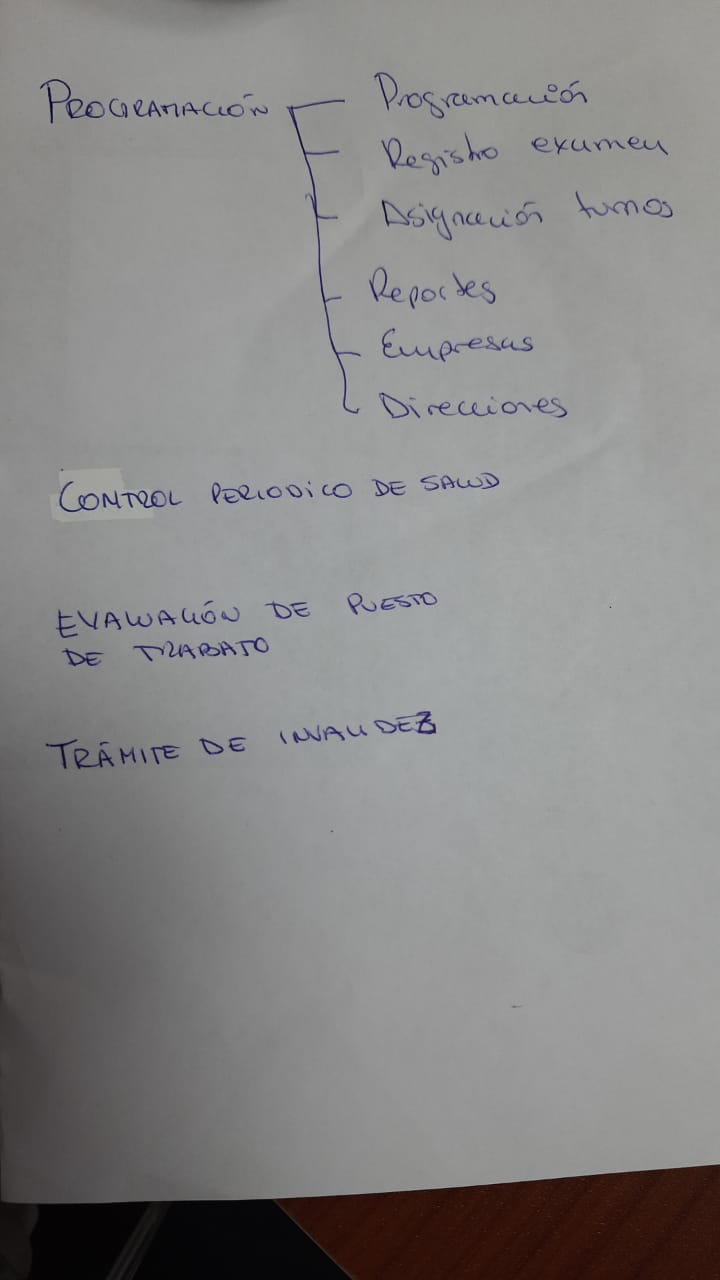 PROGRAMACIÓN
Programación
Registro examen
Asignación turnos
Reportes
Empresas
Direcciones
CONTROL PERIODICO DE SALUD
EVALUACIÓN DE PUESTO
DE TRABAJO
TRÁMITE DE INVALIDEZ